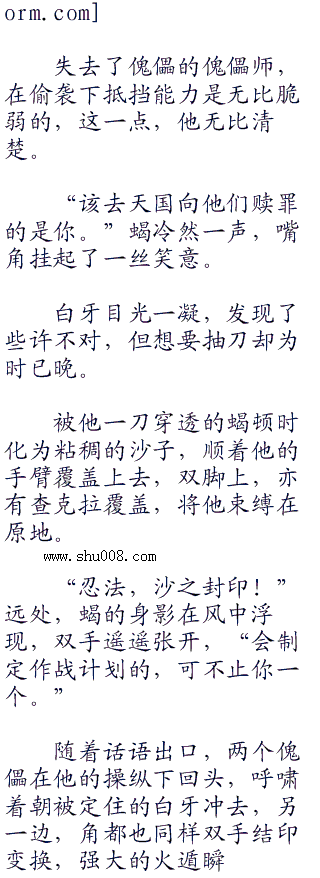 orm.com]
失去了傀儡的傀儡师，
在偷袭下抵挡能力是无比脆
弱的，这一点，他无比清
楚。
“该去天国向他们赎罪
的是你。”蝎冷然一声，嘴
角挂起了一丝笑意。
白牙目光一凝，发现了
些许不对，但想要抽刀却为
时已晚。
被他一刀穿透的蝎顿时
化为粘稠的沙子，顺着他的
手臂覆盖上去，双脚上，亦
有查克拉覆盖，将他束缚在
原地。
www.shu008.com
“忍法，沙之封印！”
远处，蝎的身影在风中浮
现，双手遥遥张开，“会制
定作战计划的，可不止你一
个。”
随着话语出口，两个傀
儡在他的操纵下回头，呼啸
着朝被定住的白牙冲去，另
一边，角都也同样双手结印
变换，强大的火遁瞬